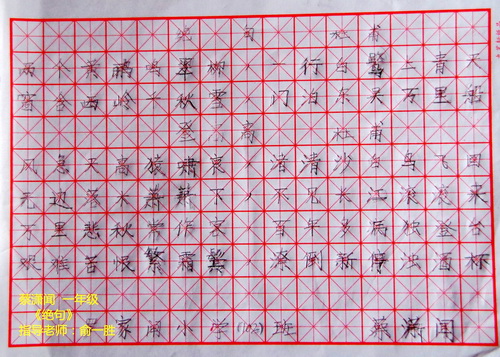 绝句 杜甫
两个黄鹂鸣翠柳 一行白鹭上青天
窗含西岭千秋雪 门泊东吴万里船
登高 杜甫
风急天高猿啸哀 渚清沙白鸟飞回
无边落木萧萧下 不尽长江滚滚来
万里悲秋常作客 百年多病独登台
艰难苦恨繁霜鬓 潦倒新停浊酒杯
家闸小学(102)班 蔡潇闻
蔡潇闻 一年级
《绝句》
指导老师：俞一胜